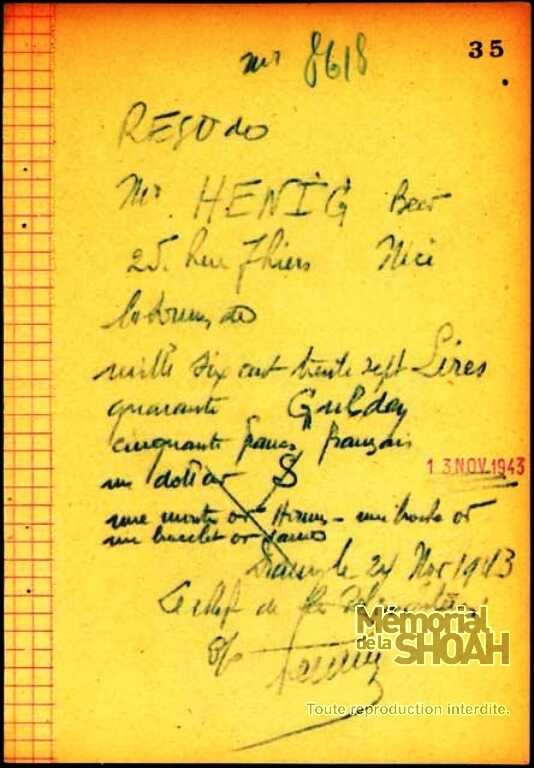 35
nr 8618
REÇU de
Mr HENIG Beer
25. Rue Thiers Nice
la somme de
mille six cent trente sept Lires
quarante Gulden
cinquante francs français
un dollar $
13 NOV. 1943
une montre or Homme - une broche or
un bracelet or dame
Drancy le 24 Nov 1943
Le chef de
Mémorial
de la SHOAH
Toute reproduction interdite.